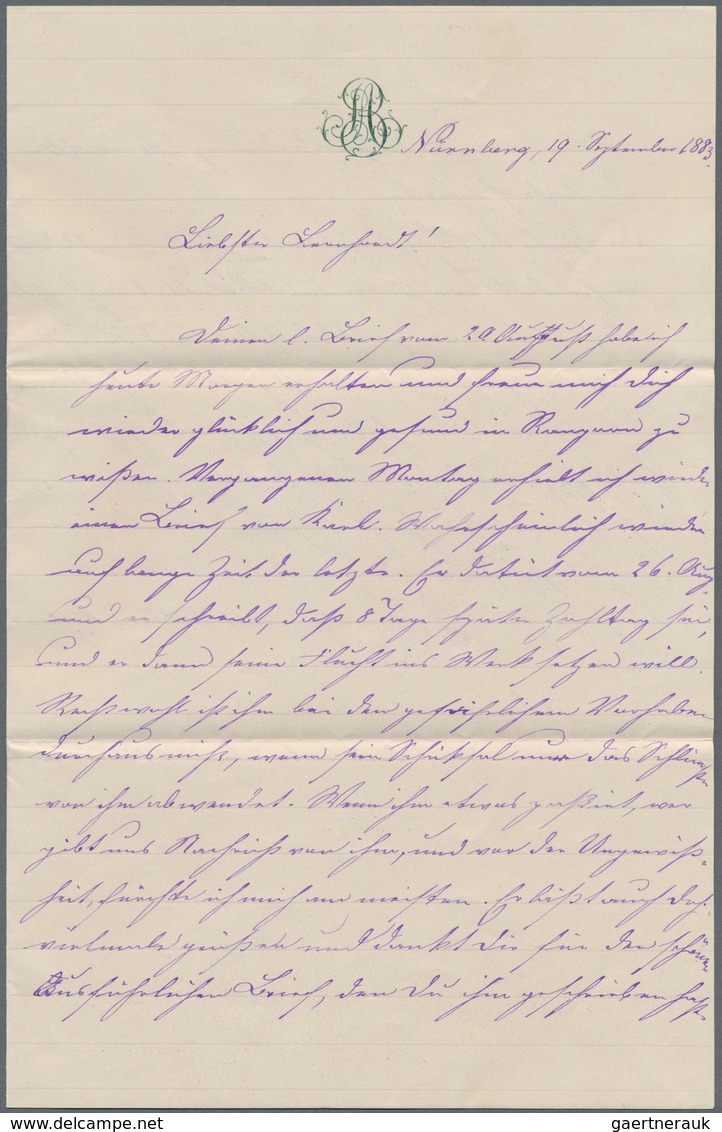 Nürnberg, 19. September 1883.
Liebster Leonhardt!
Deinen l. Brief vom 20. August habe ich
heute Morgen erhalten und freue mich dich
wieder glücklich und gesund in Rangoon zu
wißen. Vergangenen Montag erhielt ich wieder
einen Brief von Karl. Wahrscheinlich wieder
auf lange Zeit der letzte. Er datirt vom 26. Aug.
und er schreibt, daß 8 Tage später Zahltag sei,
und er dann seine Flucht ins Werk setzen will.
Recht wohl ist ihm bei den gefährlichen Vorhaben
durchaus nicht, wenn sein Schicksal nur das Schlimmste
von ihm abwendet. Wenn ihm etwas paßirt, wer
gibt uns Nachricht von ihm, und vor der Ungewiß-
heit, fürchte ich mich am meisten. Er läßt auch Dich
vielmals grüßen und dankt Dir für den schönen
ausführlichen Brief, den Du ihm geschrieben hast
gaertnerauk